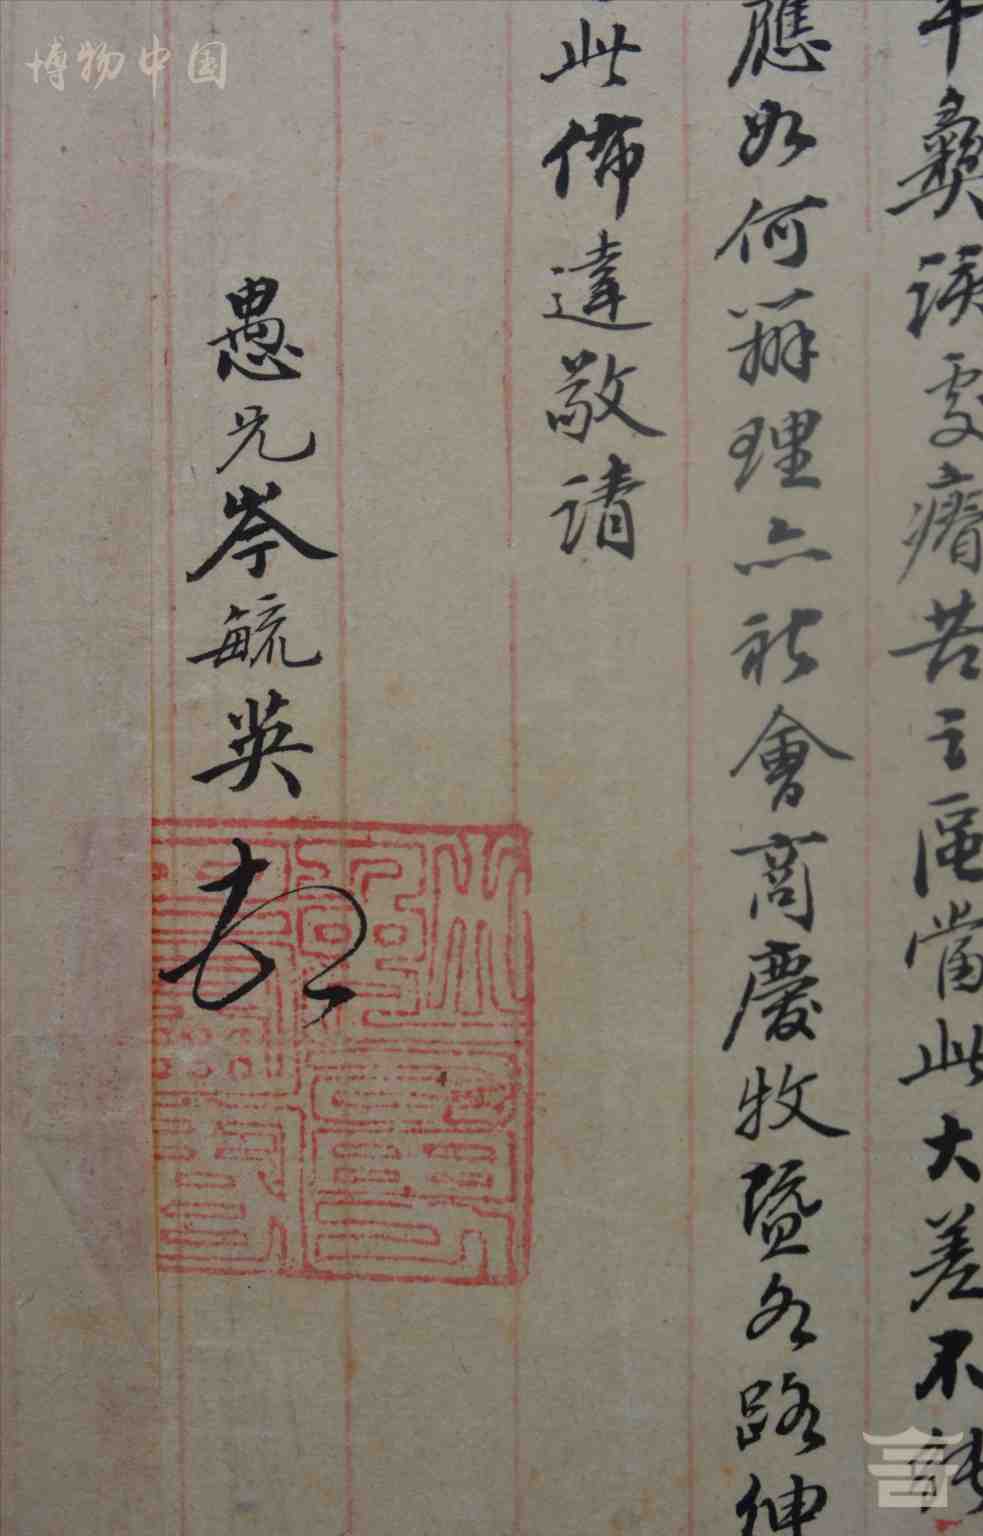 彝族處瘠苦之區當此大差不
應如何辦理亦祈會商慶牧暨各路紳
此佈達敬請
愚兄岑毓英
博物中国